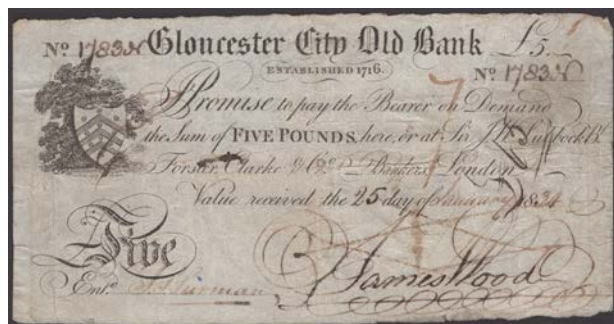 No 1783N Gloucester City Old Bank £5.
ESTABLISHED 1716.
No 1783N
I Promise to pay the Bearer on Demand
the Sum of FIVE POUNDS here, or at Sir J. W. Lubbock Bt.
Forster, Clarke & Co. Bankers London
Value received the 25 day of January 1834
Five
Entd.
James Wood